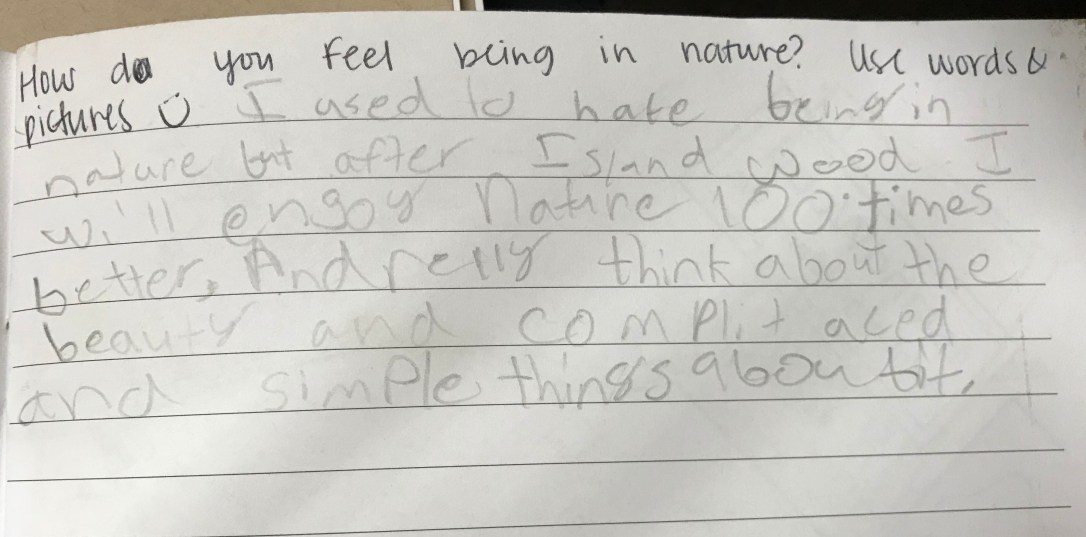 How do you feel being in nature? Use words &
pictures I used to hate being in
nature but after Island wood I
will engoy nature 100 times
better, And relly think about the
beauty and complit aced
and simple things about it.